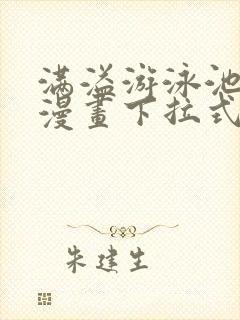 满溢游泳池
漫畫下拉式
朱建生